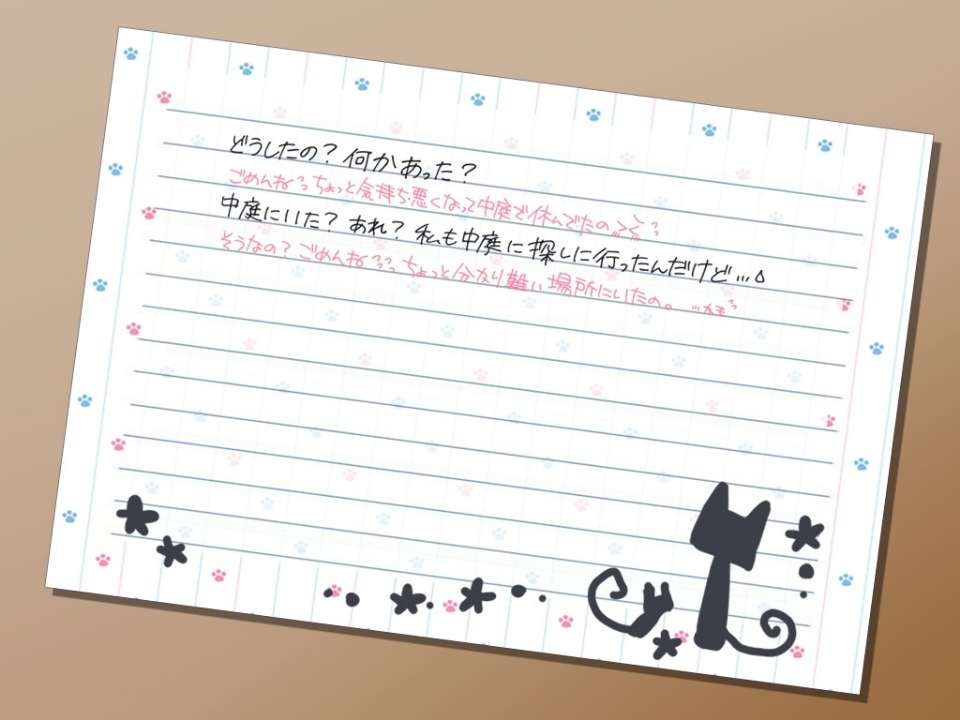 どうしたの？何かあった？
ごめんねっっちょっと気持ち悪くなって中庭で休んでたの＞＜っっ
中庭にいた？あれ？私も中庭に探しに行ったんだけど…。
そうなの？ごめんねっっっちょっと分かり難い場所にいたの。…かもっ